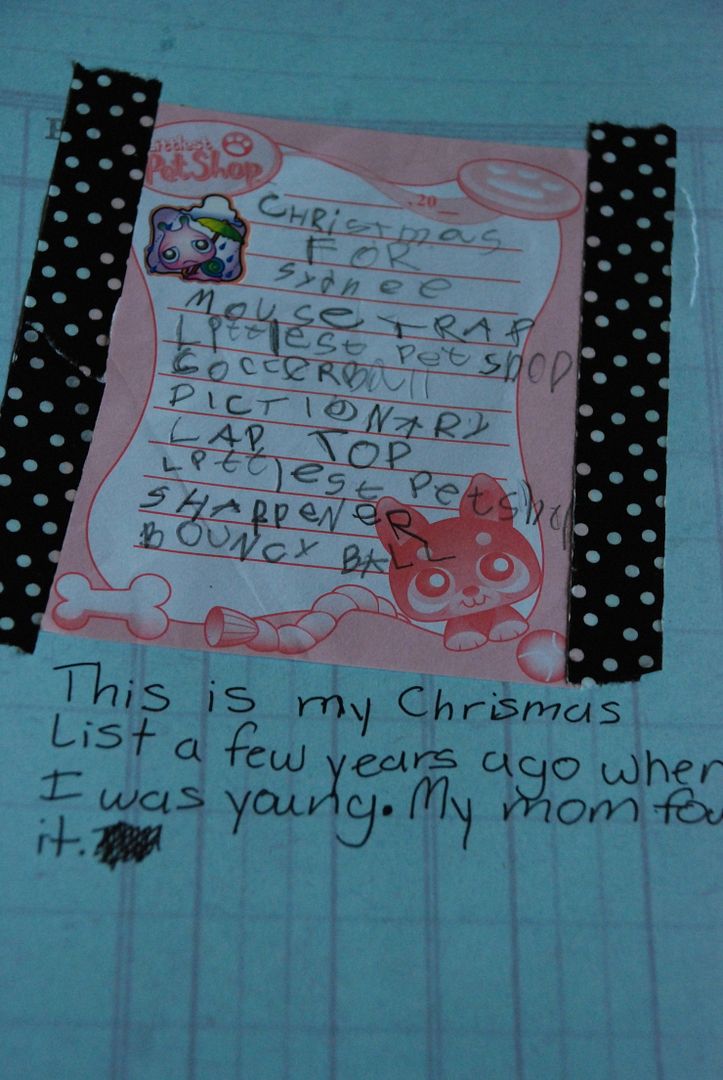 Littlest
PetShop
, 20
CHRistmas
FOR
SYDNEE
MOUSE TRAP
Littlest PetshOP
SOCCERBall
PICTIONARY
LAP TOP
Littlest Petshop
SHARPENER
BOUNCY BALL
This is my Chrismas
List a few years ago when
I was young. My mom fou
it.